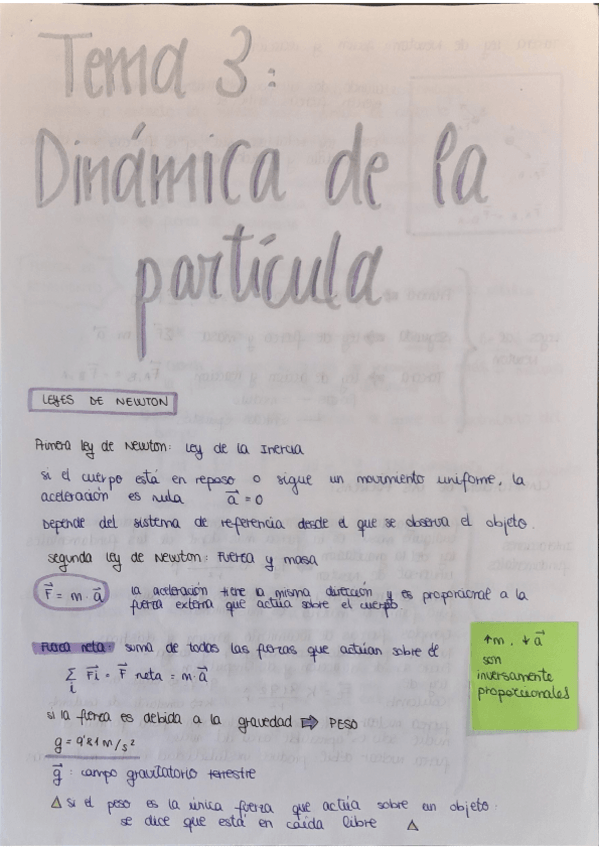 Tema 3:
Dinámica de la
partícula
LEYES DE NEWTON
Primera ley de Newton: Ley de la Inercia
si el cuerpo está en reposo o sigue un movimiento uniforme, la
aceleración es nula a⃗ = 0
Depende del sistema de referencia desde el que se observa el objeto.
segunda ley de Newton: Fuerza y masa
F⃗ = m · a⃗
la aceleración tiene la misma dirección y es proporcional a la
fuerza externa que actúa sobre el cuerpo.
Fuerza neta: suma de todas las fuerzas que actúan sobre él
∑ F⃗i = F⃗ neta = m · a⃗
i
↑m, ↓a⃗
son
inversamente
proporcionales
si la fuerza es debida a la gravedad ⇒ PESO
g = 9'81 m/s²
g⃗ : campo gravitatorio terrestre
△ si el peso es la única fuerza que actúa sobre un objeto:
se dice que está en caída libre △